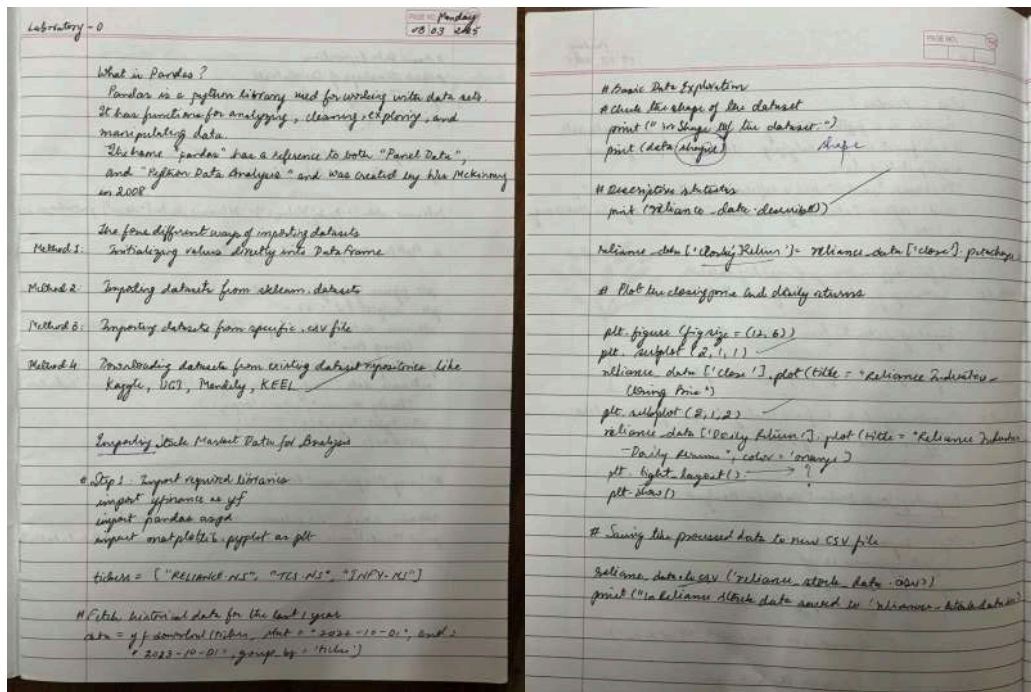 Laboratory - 0
PAGE NO.
Monday
03 03 2025
What is Pandas ?
Pandas is a python library used for working with data sets.
It has functions for analyzing, cleaning, exploring, and
manipulating data.
The name "pandas" has a reference to both "Panel Data",
and "Python Data Analysis" and was created by Wes McKinney
in 2008
The four different ways of importing datasets
Method 1: Initializing values directly into DataFrame
Method 2: Importing datasets from sklearn.datasets
Method 3: Importing datasets from specific .csv file
Method 4: Downloading datasets from existing dataset repositories like
Kaggle, UCI, Mendely, KEEL
Importing Stock Market Data for Analysis
# Step 1 : Import required libraries
import yfinance as yf
import pandas as pd
import matplotlib.pyplot as plt
tickers = ["RELIANCE.NS", "TCS.NS", "INFY.NS"]
# Fetch historical data for the last 1 year
data = yf.download(tickers, start = "2022-10-01", end =
"2023-10-01", group_by = 'ticker')
PAGE NO.
# Basic Data Exploration
# Check the shape of the dataset
print ("\n Shape of the dataset:")
print (data.shape) shape
# Descriptive statistics
print (reliance_data.describe())
reliance_data['Closing Return'] = reliance_data['close'].pctchange
# Plot the closing price and daily returns
plt.figure (figsize = (12, 6))
plt.subplot (2, 1, 1)
reliance_data ['close'].plot (title = "Reliance Industries -
Closing Price")
plt.subplot (2, 1, 2)
reliance_data ['Daily Return'].plot (title = "Reliance Industries
- Daily Returns", color = 'orange')
plt.tight_layout() ?
plt.show()
# Saving the processed data to new CSV file
reliance_data.to_csv ('reliance_stock_data.csv')
print ("\n Reliance stock data saved to